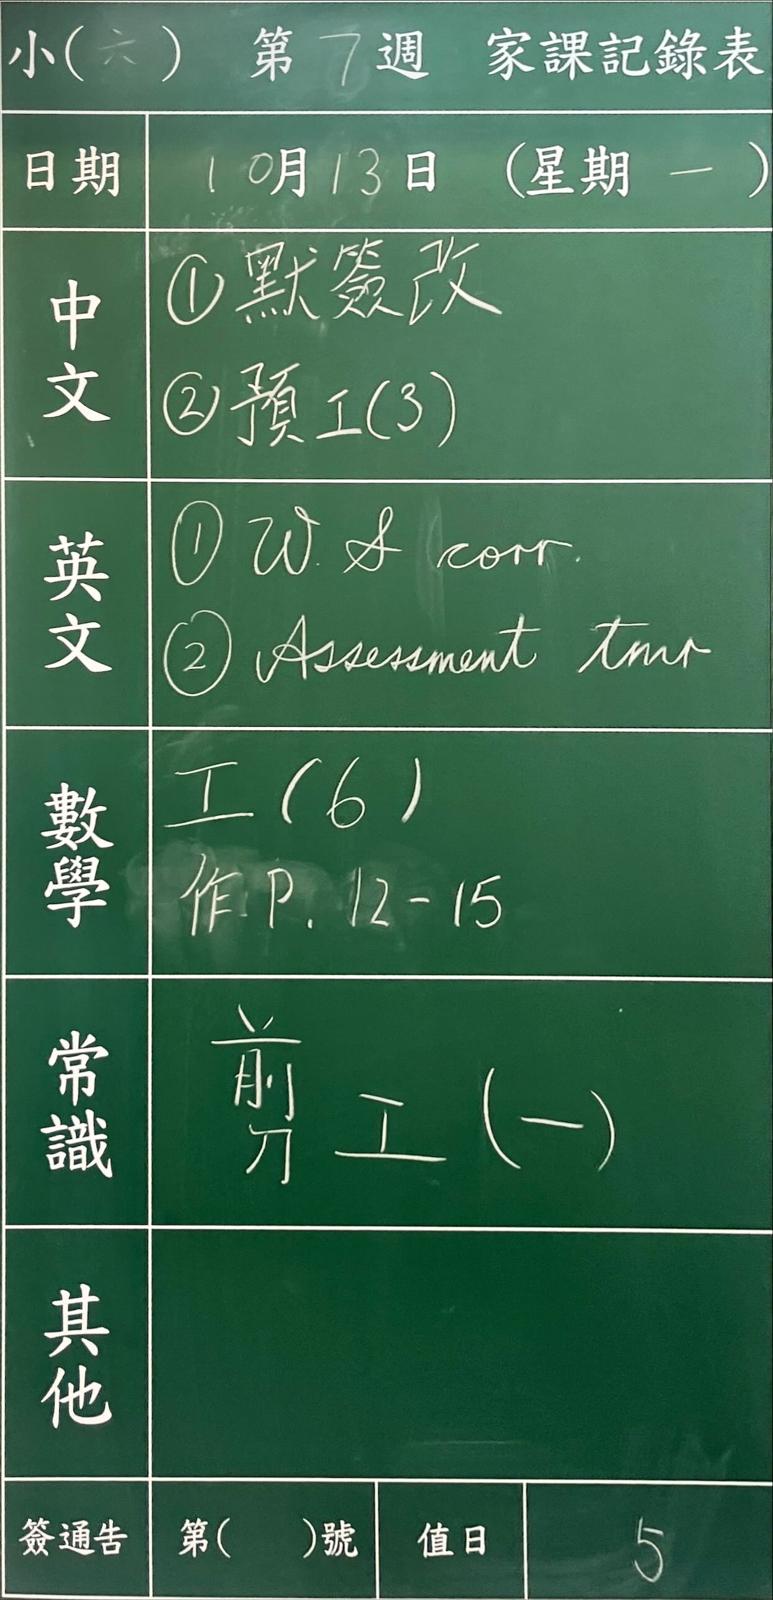 小(六) 第7週 家課記錄表
日期 10月13日 (星期一)
中文
①默簽改
②預工(3)
英文
① W.S corr.
② Assessment tmr
數學
工(6)
作P.12-15
常識
剪工(一)
其他
簽通告 第( )號 值日 5